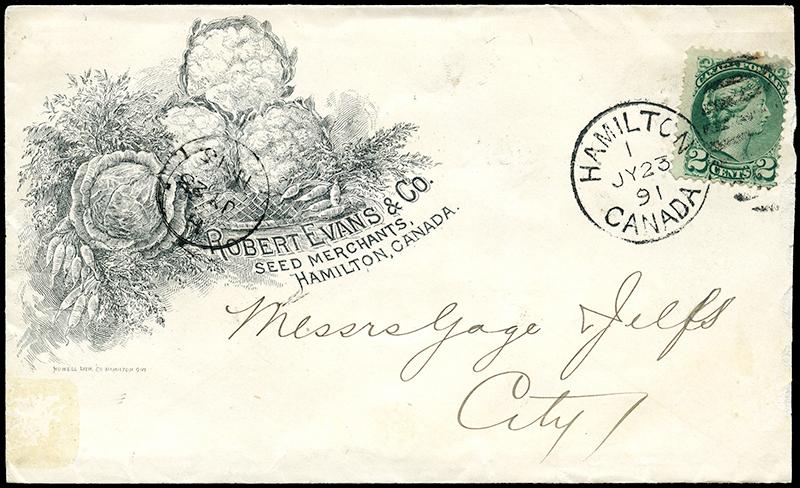 ROBERT EVANS & CO.
SEED MERCHANTS,
HAMILTON, CANADA.
HOWELL LITH. CO HAMILTON ONT
HAMILTON
1
JY 23
91
CANADA
CANADA POSTAGE
2 CENTS 2
Messrs Gage & Jelfs
City